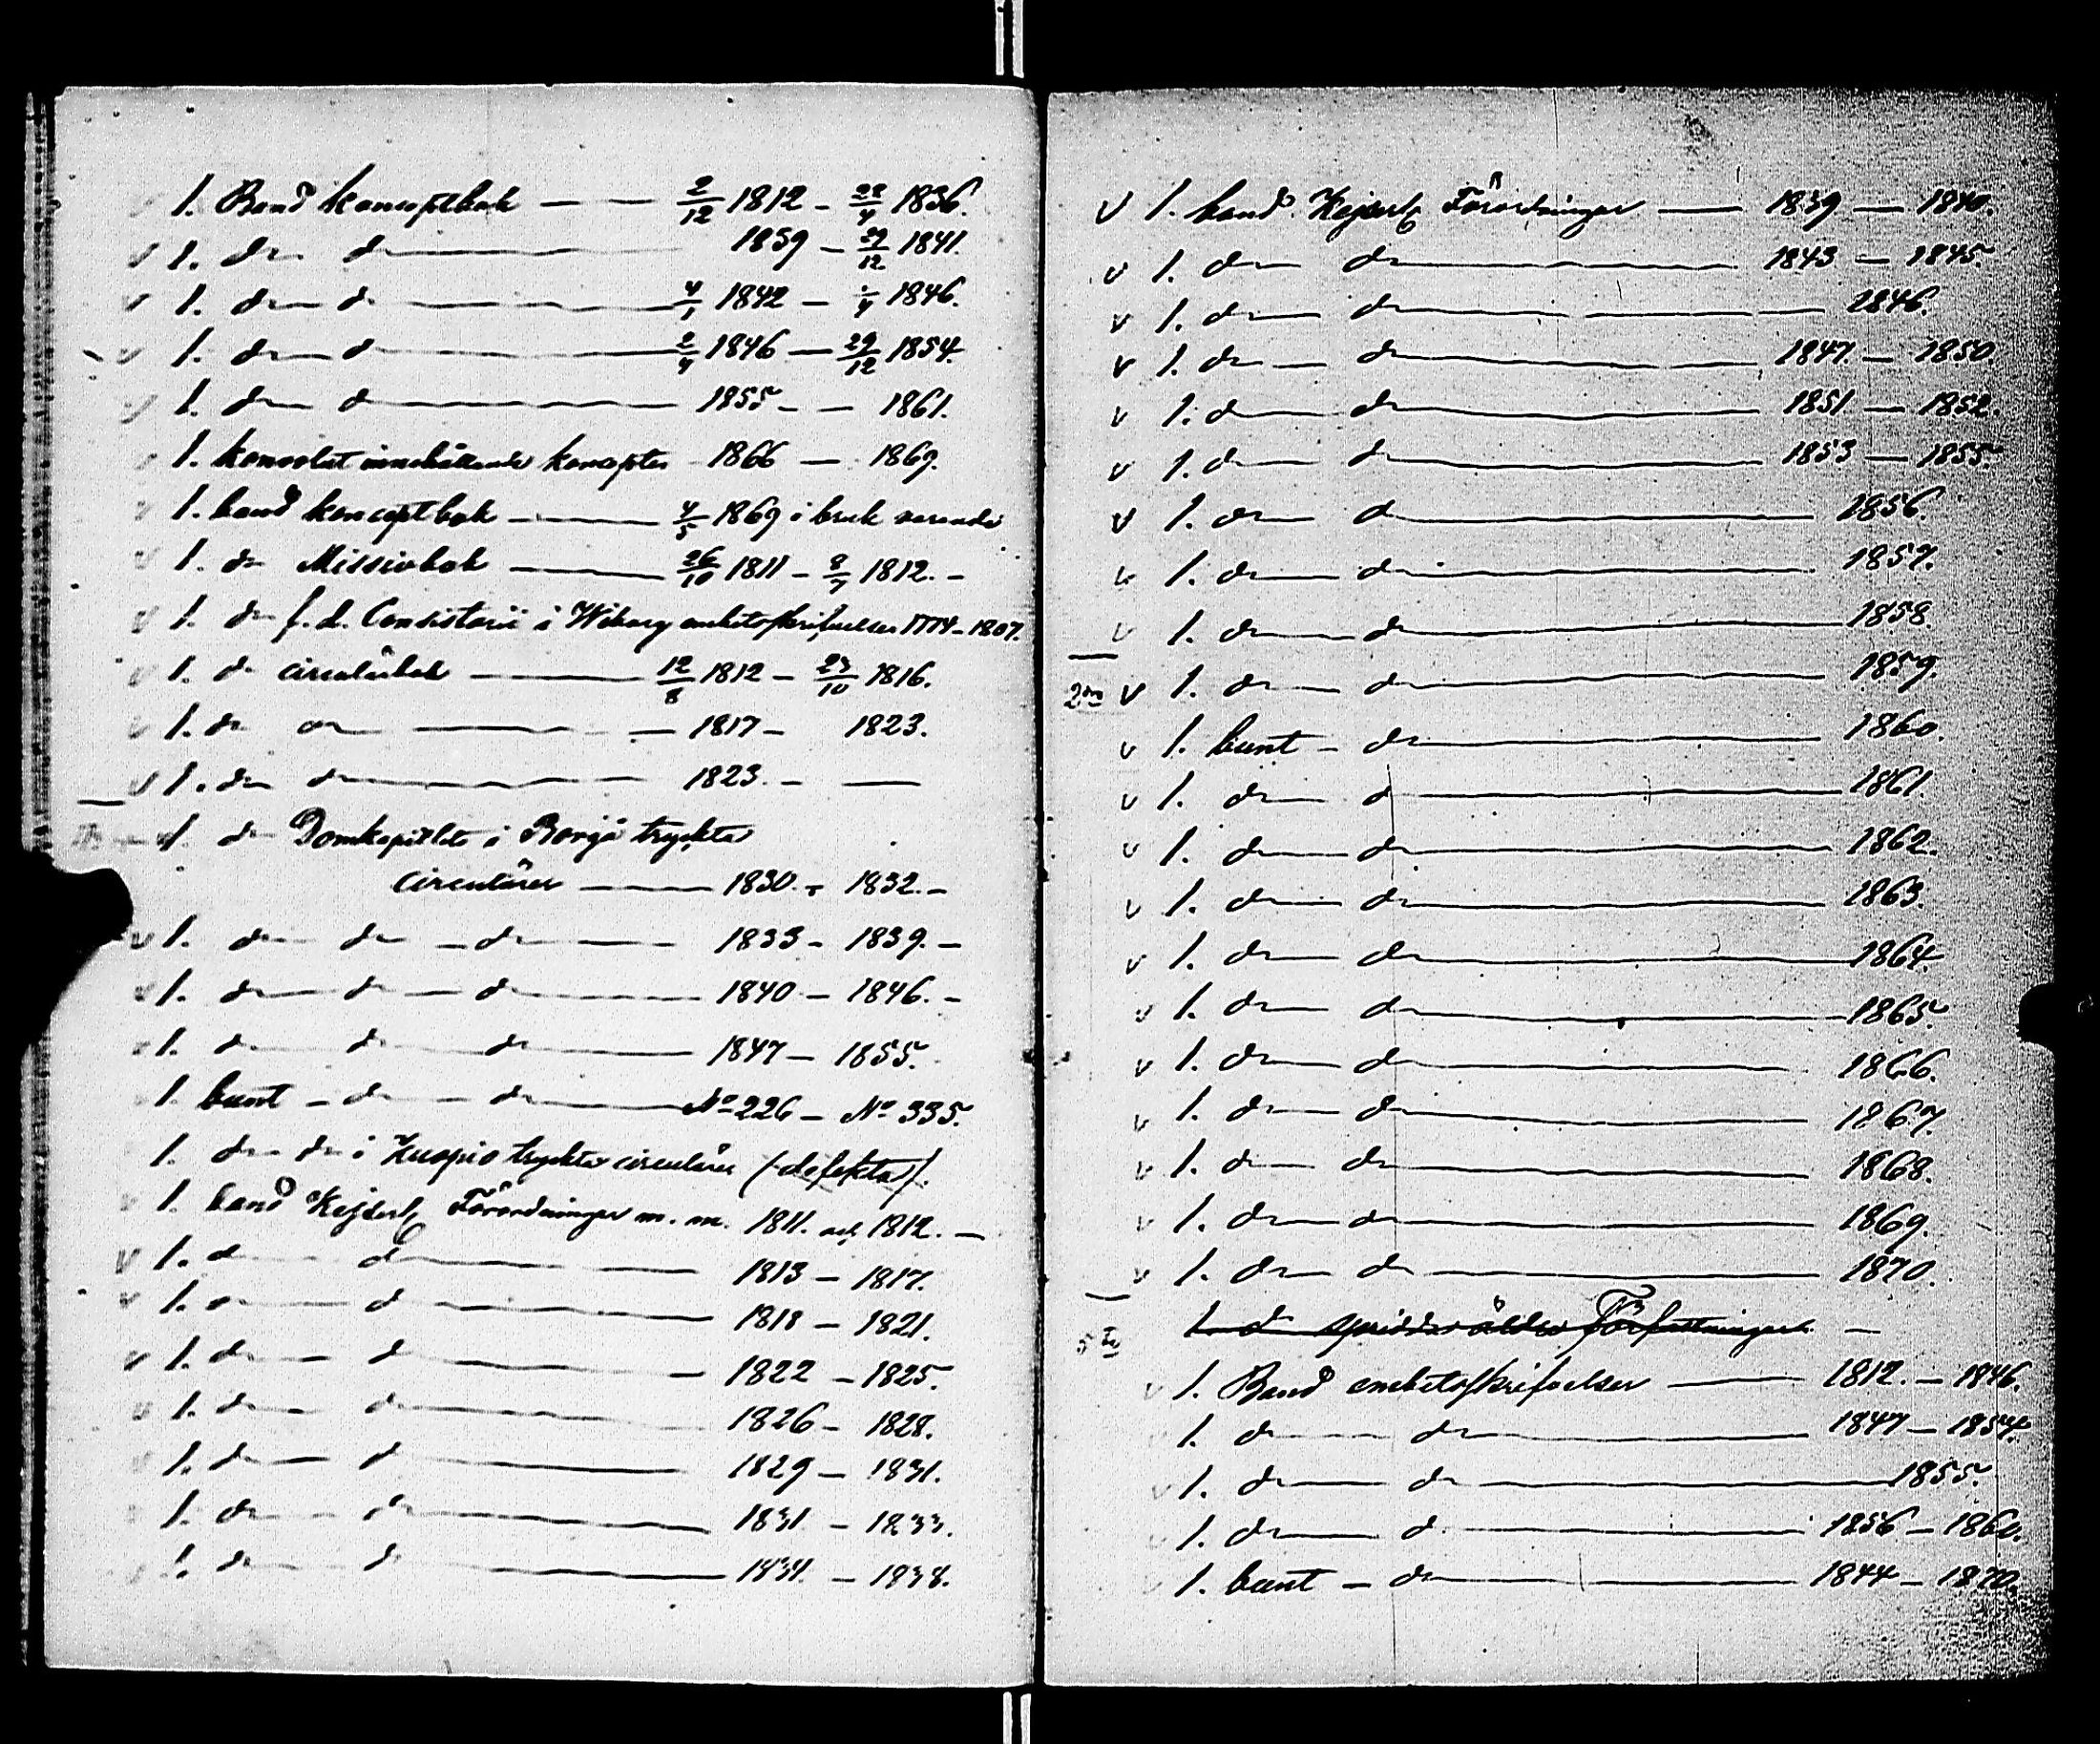 v 1. Band konceptbok — — 2/12 1812 – 22/4 1836.
v 1. do do — 1839 – 29/12 1841.
v 1. do do — 4/1 1842 – 1/4 1846.
v 1. do do — 2/4 1846 — 29/12 1854.
v 1. do do — 1855 – – 1861.
1. konvolut innehållande koncepter 1866 — 1869.
v 1. band konceptbok — 4/5 1869 i bruk varande
v 1. do Missivbok — 26/10 1811 – 8/7 1812. –
v 1. do f. d. Consistorii i Wiborg embetsskrifvelser – 1807.
v 1. do circulärbok — 12/8 1812 – 23/10 1816.
v 1. do do — 1817 – 1823.
v 1. do do — 1823. – —
v 1. do Domkapitlets i Borgå tryckta
circulärer — 1830. – 1832. –
v 1. do do – do — 1833 – 1839. –
v 1. do do – do — 1840 – 1846. –
v 1. do do do — 1847 – 1855.
1. bunt – do – do — No 226 – No 335.
1. do do i Kuopio tryckta circulärer (defekta).
v 1. band Kejserl. Förordningar m. m. 1811. och 1812. —
v 1. do do — 1813 – 1817.
v 1. do do — 1818 – 1821.
v 1. do do — 1822 – 1825.
v 1. do do — 1826 – 1828.
v 1. do do — 1829 – 1831.
1. do do — 1831 – 1833.
1. do do — – 1838.
v 1. band Kejserl. Förordningar — 1839 — 1840.
v 1. do do — 1843 — 1845.
v 1. do do — 1846.
v 1. do do — 1847. — 1850
v 1. do do — 1851 — 1852.
v 1. do do — 1853 — 1855.
v 1. do do — 1856.
v 1. do do — 1857.
v 1. do do — 1858.
v 1. do do — 1859.
v 1. bunt – do — 1860.
v 1. do do — 1861.
v 1. do do — 1862.
v 1. do do — 1863.
v 1. do do — 1864.
v 1. do do — 1865.
v 1. do do — 1866.
v 1. do do — 1867.
v 1. do do — 1868.
v 1. do do — 1869.
v 1. do do — 1870.
1. do spridda äldre Författningar. —
v 1. Band embetsskrifvelser — 1812. – 1846.
1. do do — 1847 – 1854.
v 1. do do — 1855.
1. do do — 1856 –
1. bunt – do — 1844 – 1870.